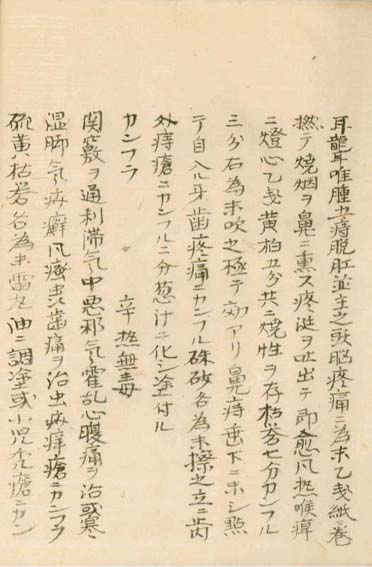 耳聾耳唯腫五痔脱肛並主之頭脳疼痛ニ為末ㇾ乙戔紙ニ巻
撚テ焼烟ヲ鼻ニ熏ス疼涎ヲ吐出テ即愈凡熱喉痺
ニ燈心乙戔黄柏五分共ニ焼性ヲ存枯礬七分カンフル
三分右為末吹之極テ効アリ鼻痔垂下ニ末シ點
テ自入ル牙歯疼痛ニカンフル硃砂各為末擦之立ニ歯
外痔瘡ニカンフル二分葱汁ニ化シ塗付ル
カンフラ 辛熱無毒
関竅ヲ通利滞気中悪邪気霍乱心腹痛ヲ治或寒
湿脚気疥癬風瘙虫歯痛ヲ治虫病痒瘡ニカンフラ
硫黄枯礬各為末雷丸油ニ調塗或小児禿瘡ニカン